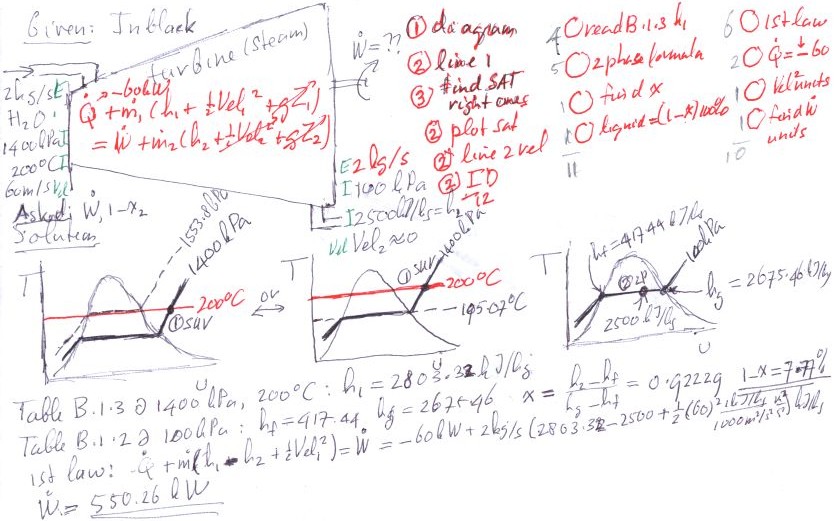 Given: In black
turbine (steam)
Ẇ = ??
2kg/s E
H₂O
1400kPa I
200°C I
60m/s Vel
Q̇ → -60kW
Q̇ + ṁ₁(h₁ + ½Vel₁² + gZ₁)
= Ẇ + ṁ₂(h₂ + ½Vel₂² + gZ₂)
E 2kg/s
I 100 kPa
I 2500kJ/kg = h₂
Vel Vel₂ ≈ 0
① diagram
② line 1
③ find SAT
right ones
② plot sat
② line 2 vel
② ID
12
4 ○ read B.1.3 h₁
5 ○ 2 phase formula
1 ○ find x
1 ○ liquid = (1-x)100%
11
6 ○ 1st law
2 ○ Q̇ = ± 60
1 ○ Vel² units
1 ○ find Ẇ
units
10
Asked: Ẇ, 1-x₂
Solution
T
1553.8kPa
1400kPa
200°C
① SUV
υ
or
T
① SUV
1400kPa
200°C
195.07°C
υ
T
hf = 417.44 kJ/kg
100kPa
② 2P
2500kJ/kg
hg = 2675.46 kJ/kg
υ
Table B.1.3 @ 1400kPa, 200°C : h₁ = 2803.32 kJ/kg
Table B.1.2 @ 100kPa : hf = 417.44 hg = 2675.46 x = (h₂-hf)/(hg-hf) = 0.92229 1-x = 7.77%
1st law: Q̇ + ṁ(h₁ - h₂ + ½Vel₁²) = Ẇ = -60kW + 2kg/s (2803.32 - 2500 + ½(60)² 1kJ/kg/1000m²/s² m²/s²) kJ/kg
Ẇ = 550.26 kW